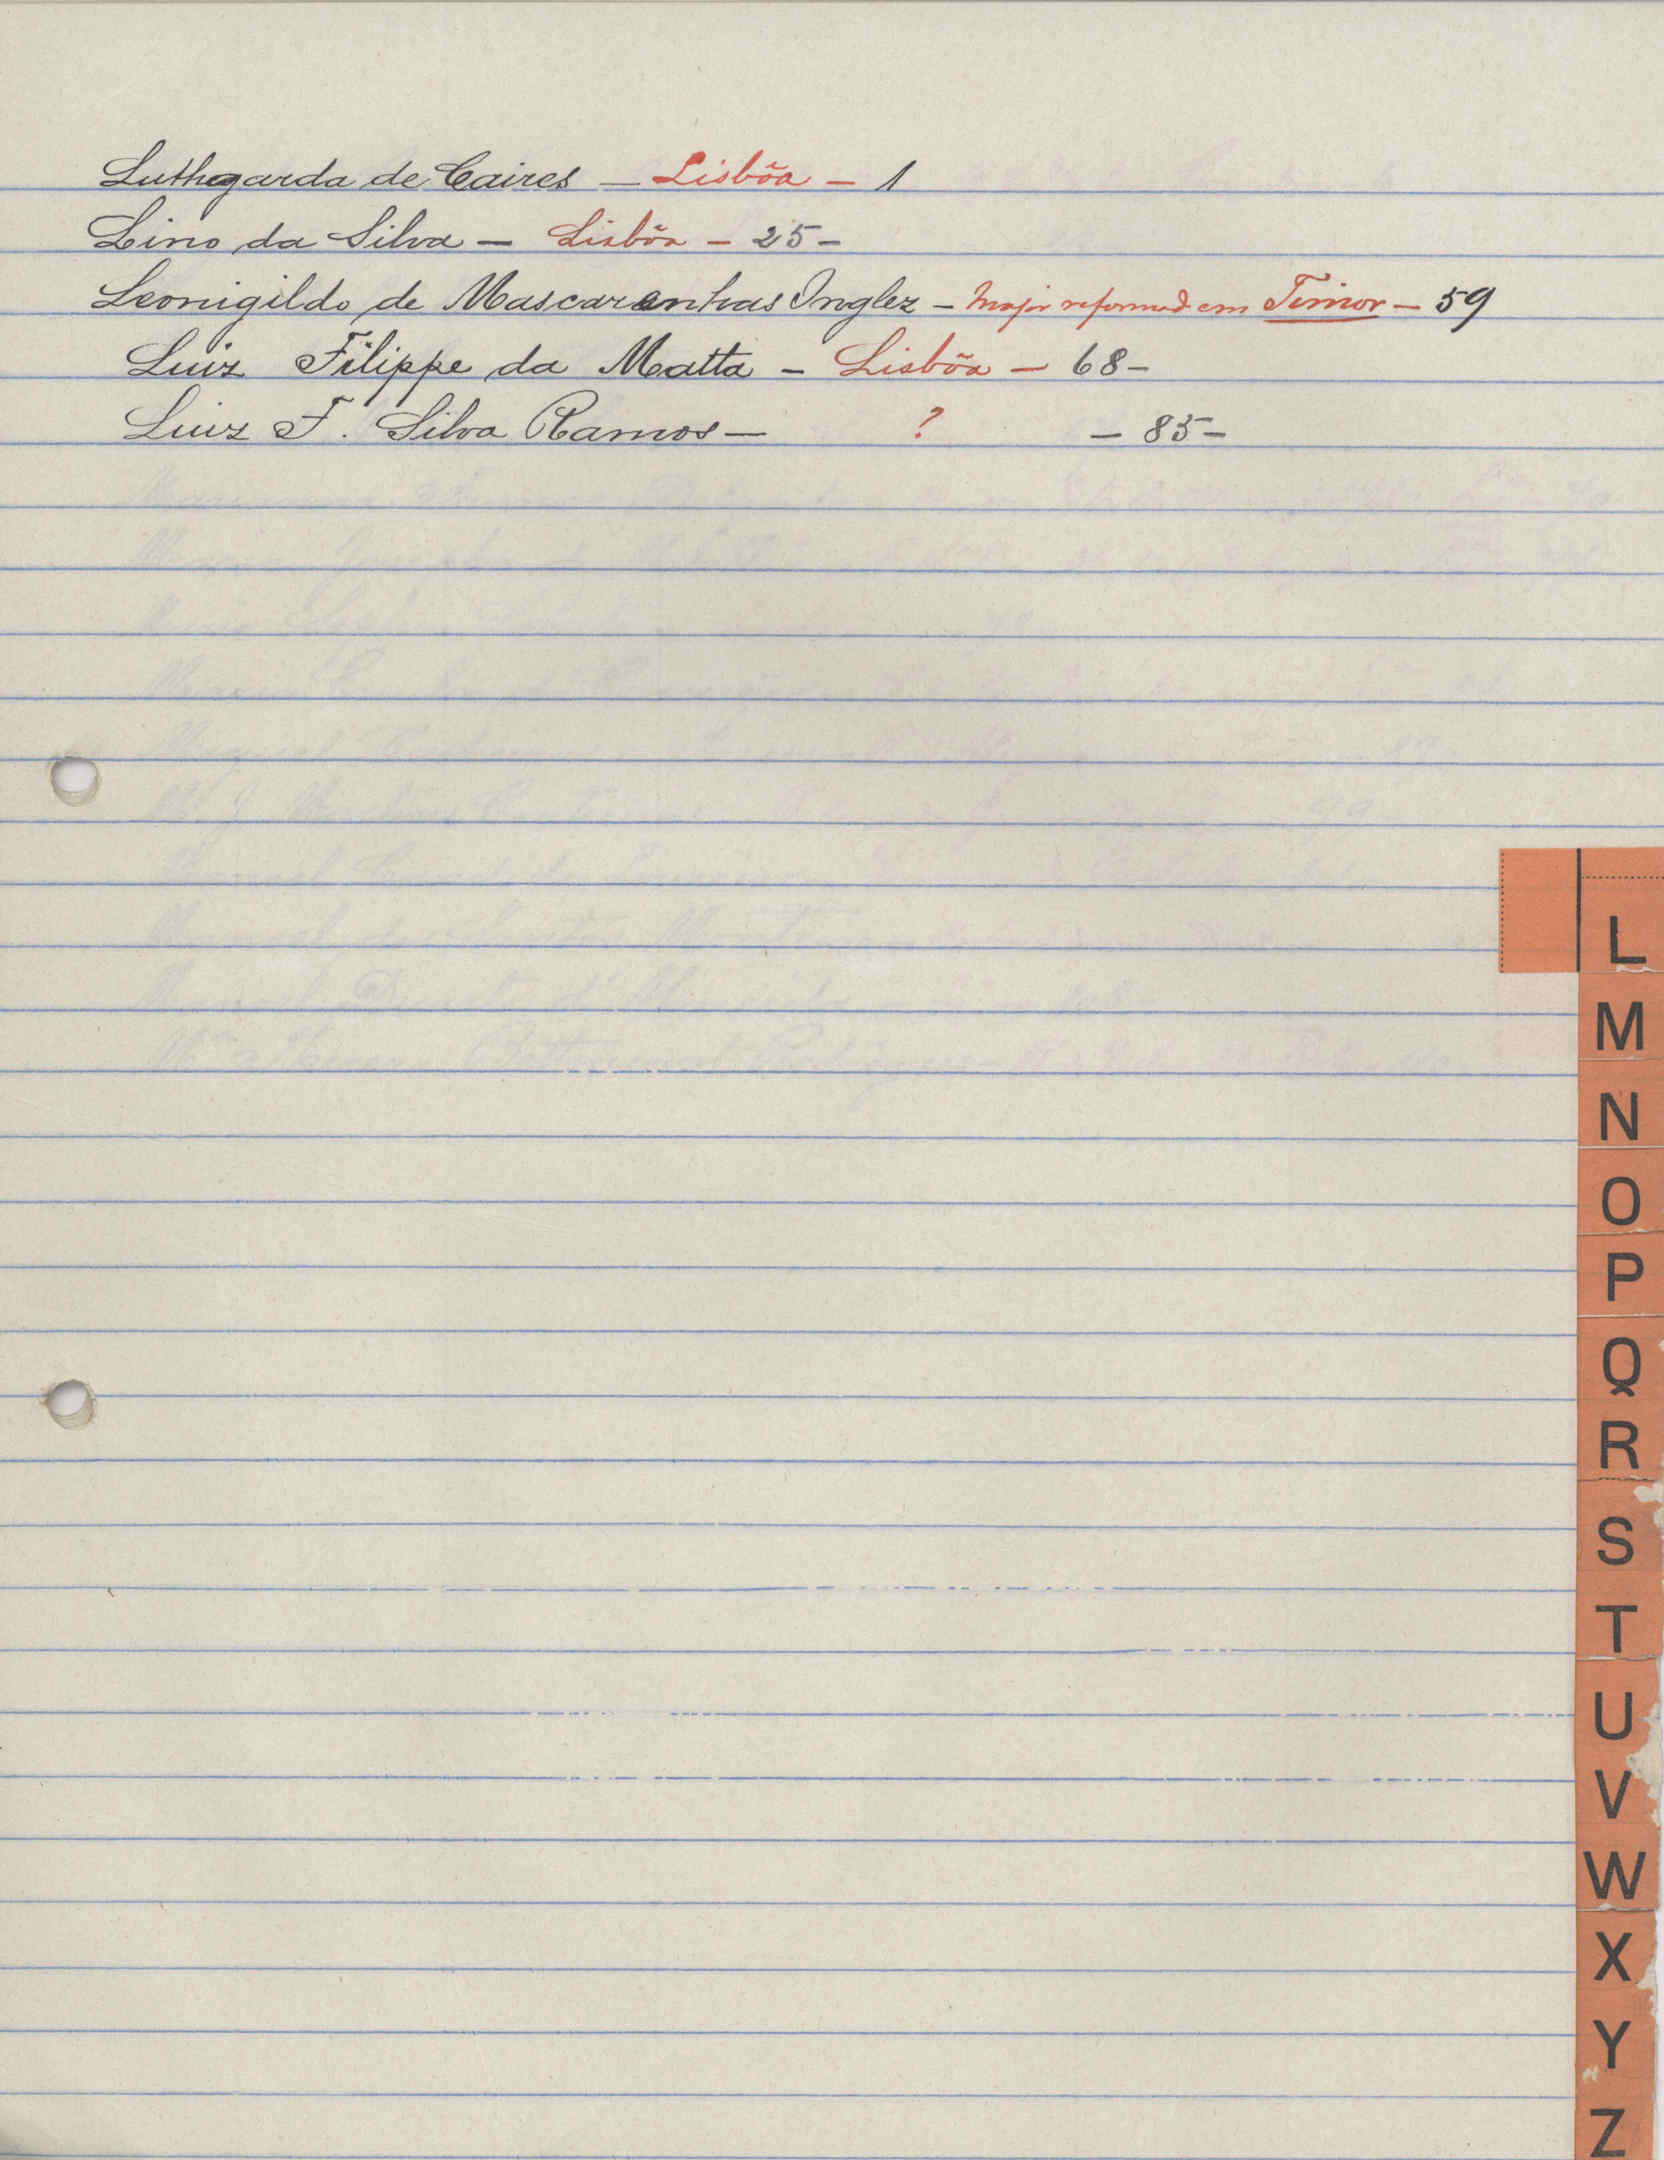 Luthegarda de Caires — Lisbõa — 1
Lino da Silva — Lisbõa — 25 —
Leonigildo de Mascarenhas Inglez — Major reformad. em Timor — 59
Luiz Filippe da Matta — Lisbõa — 68 —
Luiz F. Silva Ramos — ? — 85 —
L
M
N
O
P
Q
R
S
T
U
V
W
X
Y
Z